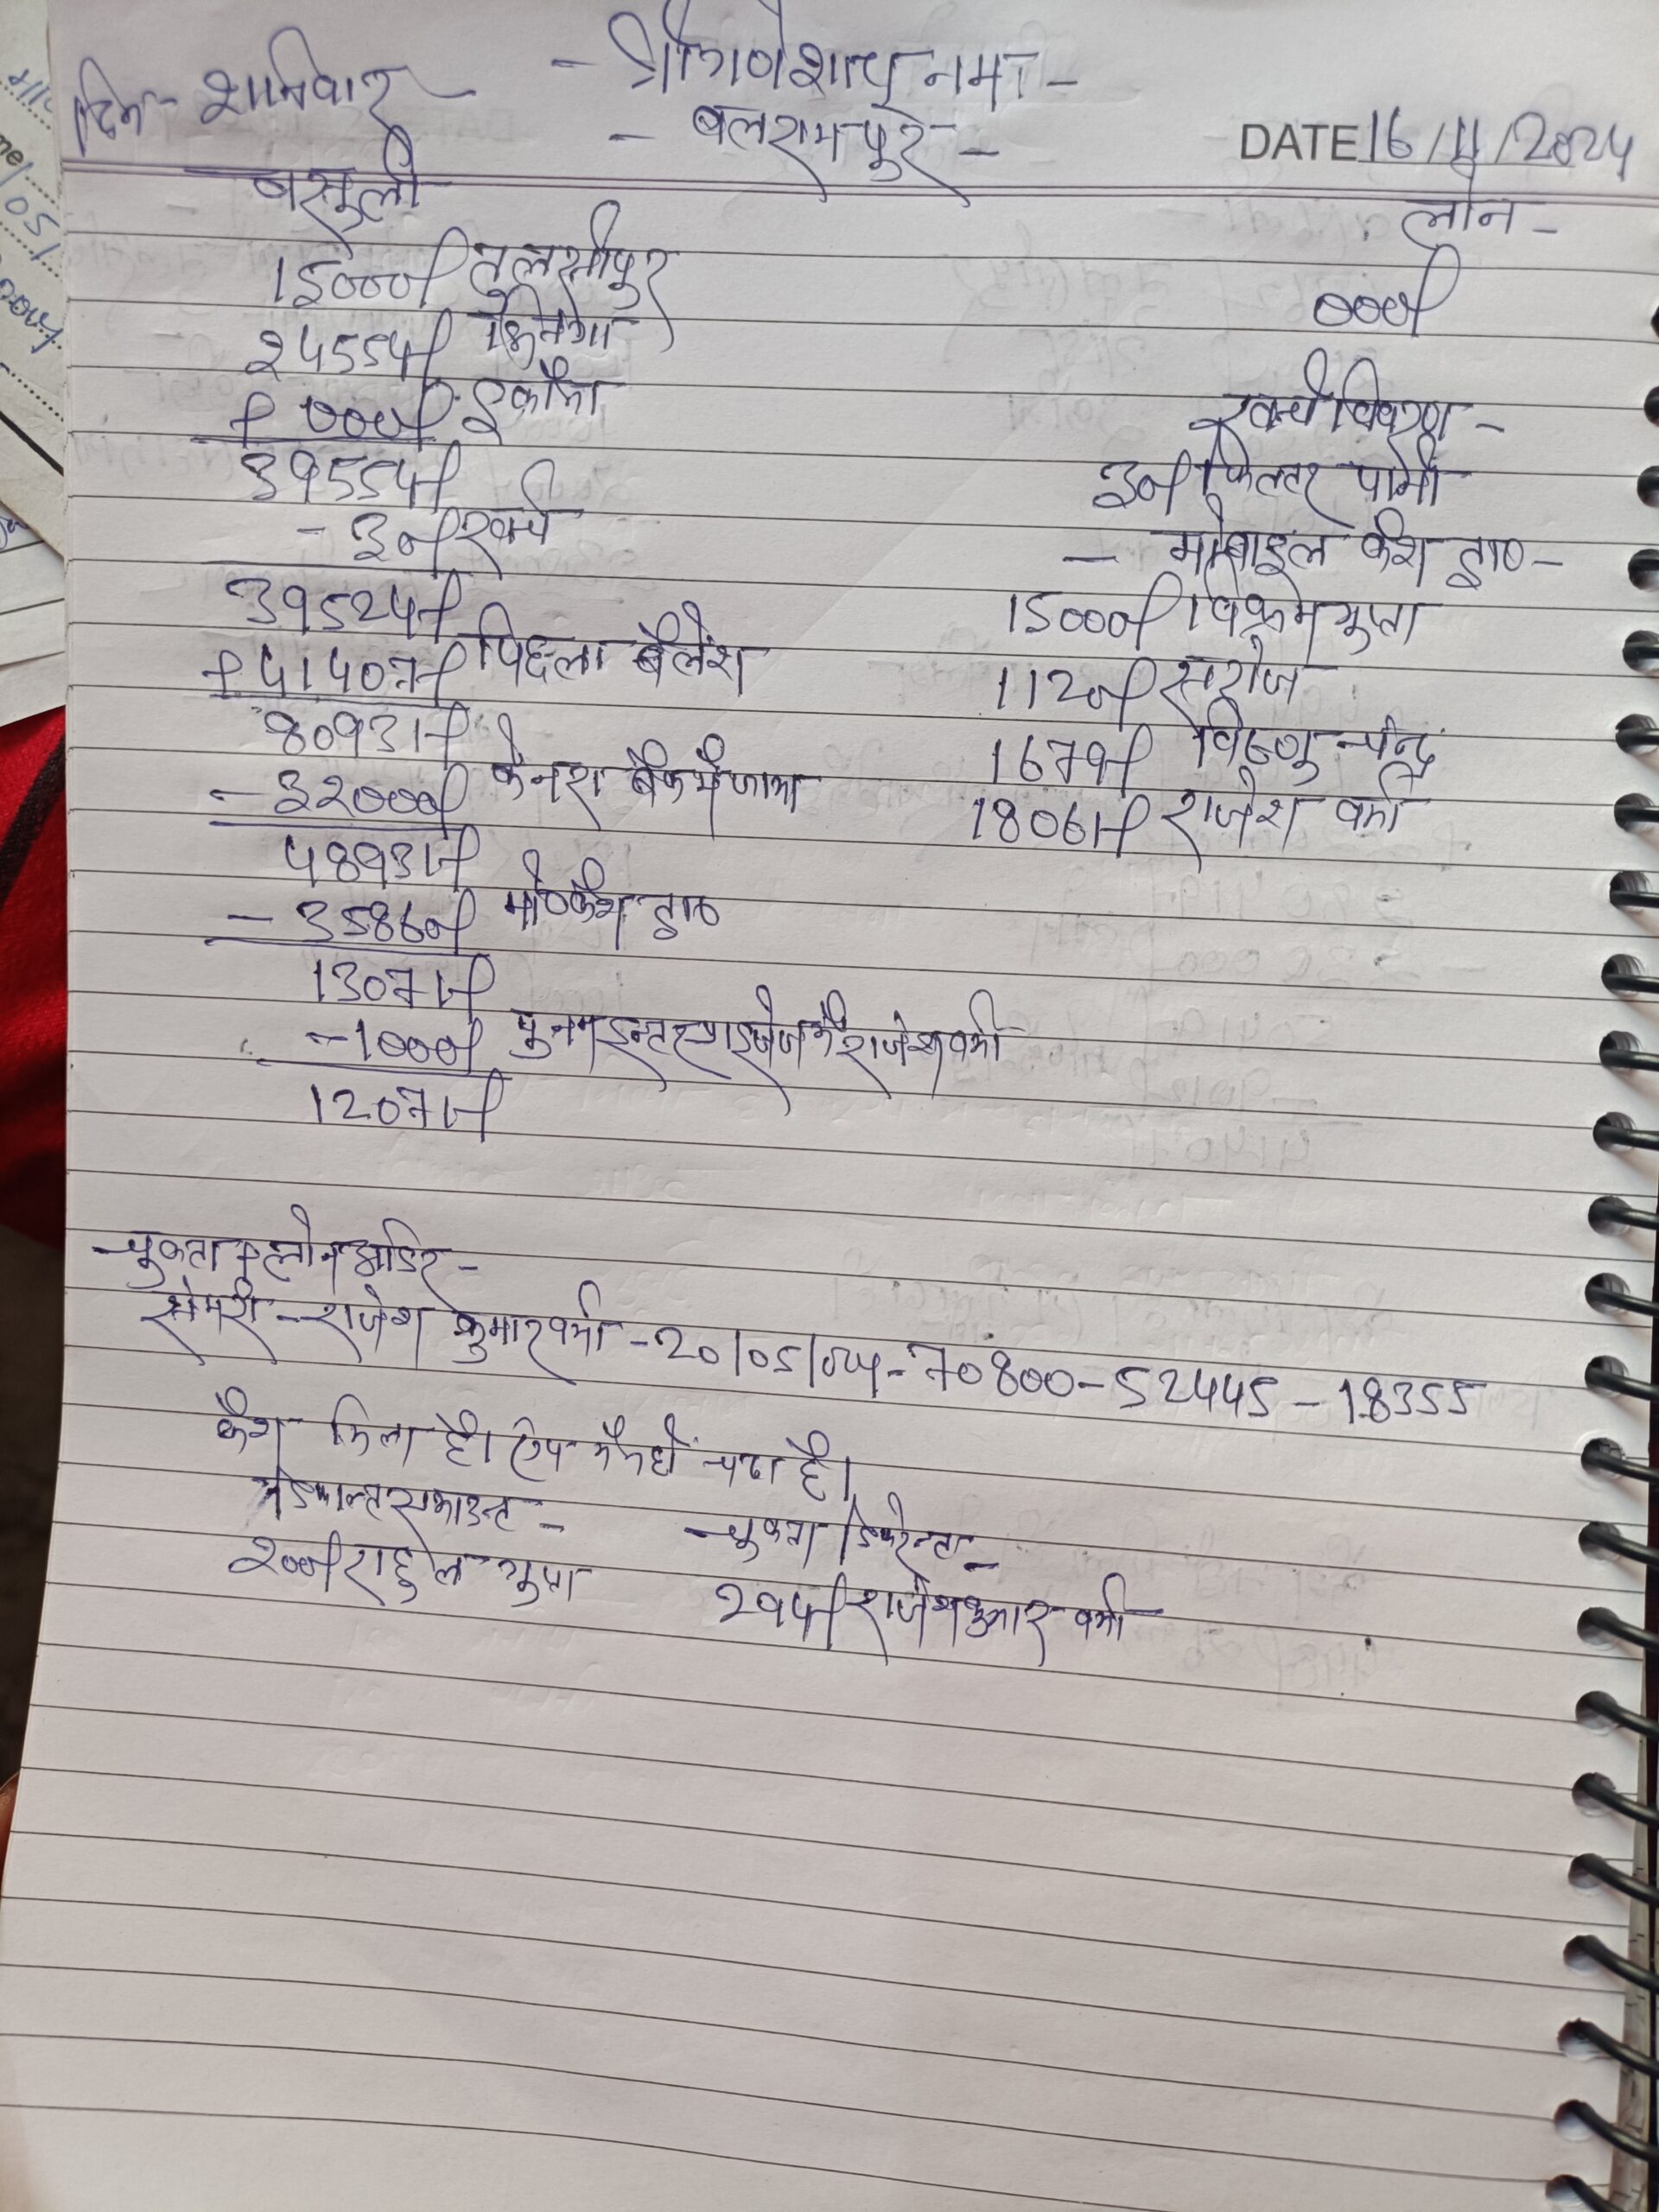 दिन- शनिवार
- श्री गणेशाय नमः -
- बलरामपुर -
DATE 16/11/2024
वसूली
15000/- तुलसीपुर
24554/- भिनगा
+ 000/- इकौना
39554/-
- 30/- खर्च
39524/-
+ 41407/- पिछला बैलेंश
80931/-
- 32000/- केनरा बैंक में जमा
48931/-
- 35860/- मो० कैश ट्रा०
13071/-
- 1000/- पुनम इन्टरप्राइजेज में राजेश वर्मा
12071/-
लोन -
000/-
खर्च विवरण -
30/- फिल्टर पानी
- मोबाइल कैश ट्रा० -
15000/- विक्रम गुप्ता
1120/- सरोज
1679/- विष्णु चन्द्र
18061/- राजेश वर्मा
- चुकता + लोन आर्डर -
सेमरी - राजेश कुमार वर्मा - 20/05/024 - 70800 - 52445 - 18355
कैश मिला है। ऐप में नहीं चढा है।
एकाउन्ट -
200/- राहुल गुप्ता
- चुकता डिफरेन्ट -
294/- राजेश कुमार वर्मा